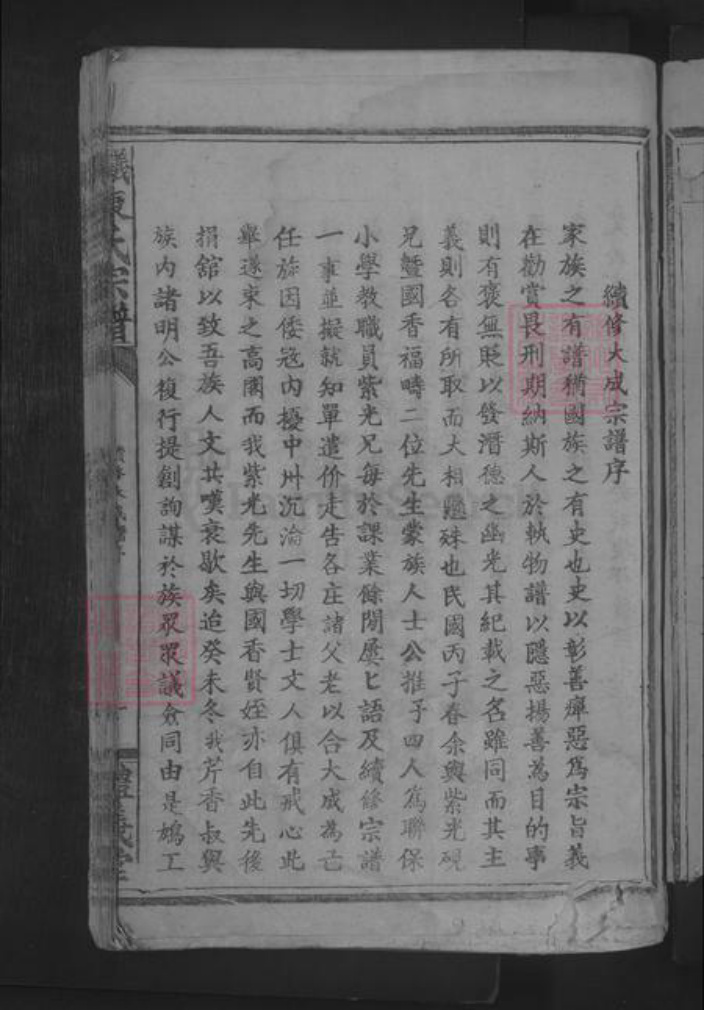 續修大成宗譜序
家族之有譜猶國族之有史也史以彰善癉惡為宗旨義
在勸賞畏刑期納斯人於軌物譜以隱惡揚善為目的事
則有褒無貶以發潛德之幽光其紀載之名雖同而其主
義則各有所取而大相懸殊也民國丙子春余與紫光硯
兄暨國香福疇二位先生蒙族人士公推予四人為聯保
小學教職員紫光兄每於課業餘閒屢匕語及續修宗譜
一事並擬就知單遣价走告各庄諸父老以合大成為己
任旋因倭寇內擾中州沉淪一切學士文人俱有戒心此
舉遂束之高閣而我紫光先生與國香賢姪亦自此先後
捐舘以致吾族人文共嘆衰歇矣迨癸未冬我芹香叔與
族內諸明公復行提創詢謀於族眾眾議僉同由是鳩工
氏宗譜